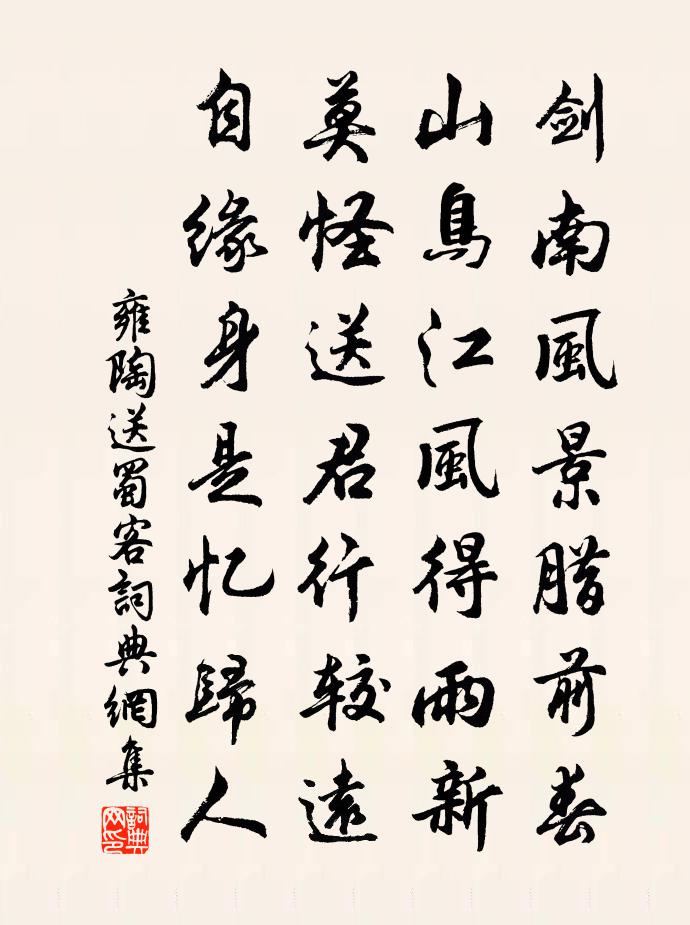 剑南風景腊前春
山鳥江風得雨新
莫怪送君行较遠
自缘身是忆歸人
雍陶送蜀客詞典網集
詞典
网印